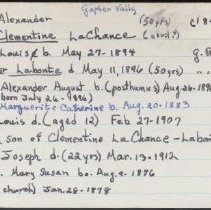 Gopher Vally
Alexander (50yrs) c/8
Clementine LaChance
Louise b May 27-1894 g.
Labonte d May 11, 1896 (50yrs)
Alexander August b. (posthumus) Aug. 26-189
born July 26-1896)
Marguerite Catherine b. Aug. 20-1883
Louis d. (aged 12) Feb 27-1907
son of Clementine LaChance-Labon
Joseph d. (22yrs) Mar. 13-1912
Mary Susan bo. Aug. 9-1886
church) Jan. 28-1878